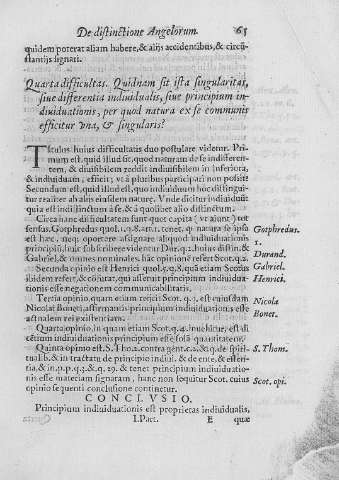 De distinctione Angelorum. 65
quidem poterat aliam habere, & alijs accidentibus, & circũ
stantijs signari.
Quarta difficultas. Quidnam sit ista singularitas,
siue differentia indiuidualis, siue principium in-
diuiduationis, per quod natura ex se communis
efficitur vna, & singularis?
Titulus huius difficultatis duo postulare videtur. Pri-
mum est, quid illud sit, quod naturam de se indifferen-
tem, & diuisibilem reddit indiuisibilem in inferiora,
& indiuiduam, efficit; vt à pluribus participari non possit
Secundum est, quid illud sit, quo indiuiduum hoc distingui-
tur realiter ab alijs eiusdem naturę. Vnde dicitur indiuiduũ
quia est indistinctum à se, & à quolibet alio distinctum.
Circa hanc difficultatem sunt quot capita (vt aiunt) tot
sensus. Gotphredus quol. art. 1. tenet, quod natura se ipsa Gotphredus.
est hæc, neq; oportere assignare aliquod indiuiduationis 1.
principiũ, huic subscribere videntur Dur. q. 2. huius distin. & Durand.
Gabriel, & omnes nominales. hãc opinionẽ refert Scot. q. 1. Gabriel.
Secunda opinio est Henrici quol. 5. q. 8. quã etiam Scotus Henrici.
ibidem refert, & confutat, qui asserit principium indiuidua-
tionis esse negationem communicabilitatis.
Tertia opinio, quam etiam reijcit Scot. q. 3. est cuiusdam Nicola
Nicolai Bonet, affirmantis principiũ indiuiduationis esse Bonet.
actualem rei existentiam.
Quarta opinio, in quam etiam Scot. q. 4. inuehitur, est di
cẽtium indiuiduationis principium esse solã quantitatem.
Quinta opinio est S. Tho. contra gent. & q. de spiri- S. Thom.
tual. & in tractatu de principio indiui. & de ente, & essen-
tia, & in p. p. q. 3. & q. 29. & tenet principium indiuiduatio-
nis esse materiam signatam, hanc non sequitur Scot. cuius Scot. opi.
opinio sequenti conclusione continetur.
CONCLVSIO.
Principium indiuiduationis est proprietas indiuidualis,
I. Part. E quæ